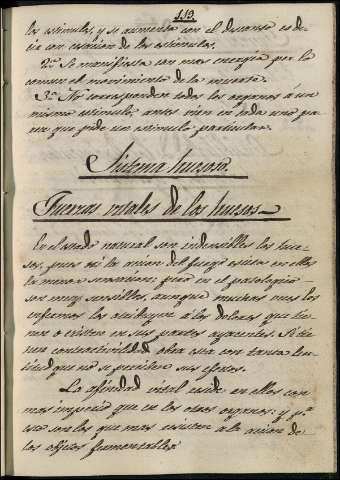 113.
los estimulos, y se aumenta con el descanso es de-
cir con cesacion de los estimulos.
2º Se manifiesta con mas energia por lo
comun el movimiento de la muerte.
3º No corresponden todos los organos á un
mismo estimulo, antes bien en cada uno pa-
rece que pide un estimulo particular.
Sistema huesoso.
Fuerzas vitales de los huesos
En el estado natural son indensibles los hue-
sos, pues ni la accion del fuego excita en ellos
la menor sensacion; pero en el patologico
son muy sensibles, aunque muchas veces los
enfermos los atribuyen á los dolores que tie-
nen ó existen en sus partes adyacentes. Si tie-
nen contractivilidad obra esta con tanta len-
titud que no se perciben sus efectos.
La afinidad vital reside en ellos con
mas imperio que en los otros organos: y pr.
eso son los que mas resisten á la accion de
los objetos fermentables.